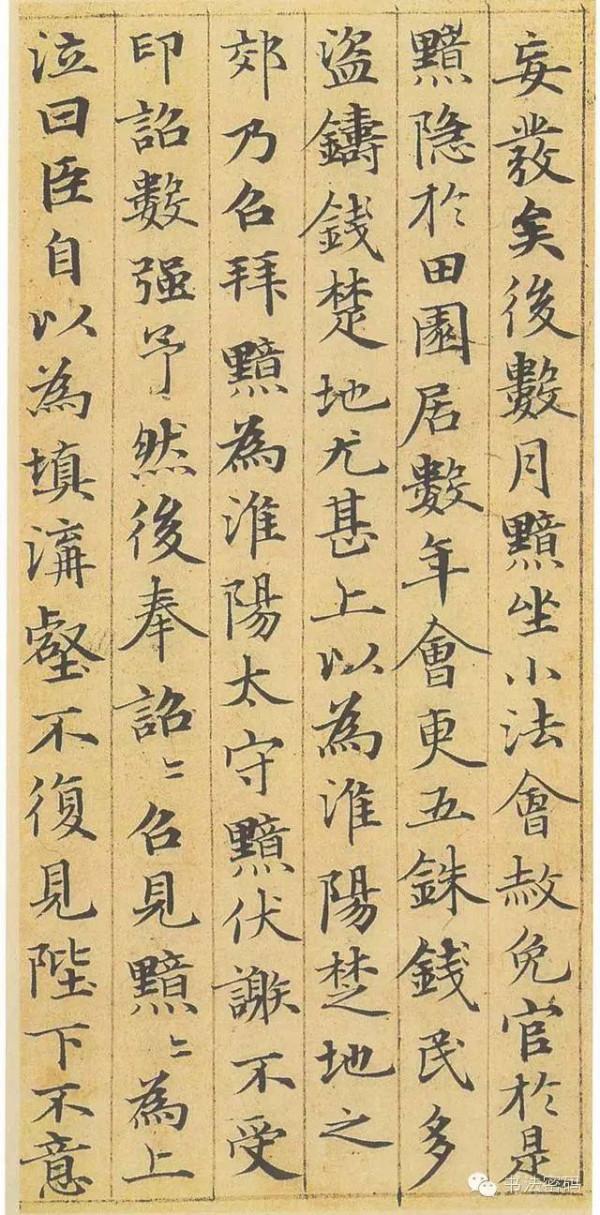 妄發矣後數月黯坐小法會赦免官於是
黯隐於田園居數年會更五銖錢民多
盜鑄錢楚地尤甚上以為淮陽楚地之
郊乃召拜黯為淮陽太守黯伏謝不受
印詔數强予然後奉詔〻召見黯〻為上
泣曰臣自以為填溝壑不復見陛下不意
书法密码